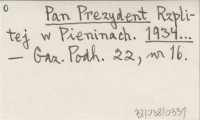 o
Pan Prezydent Rzpli-
tej w Pieninach. 1934...
— Gaz. Podh. 22, nr 16.
32/038/0339